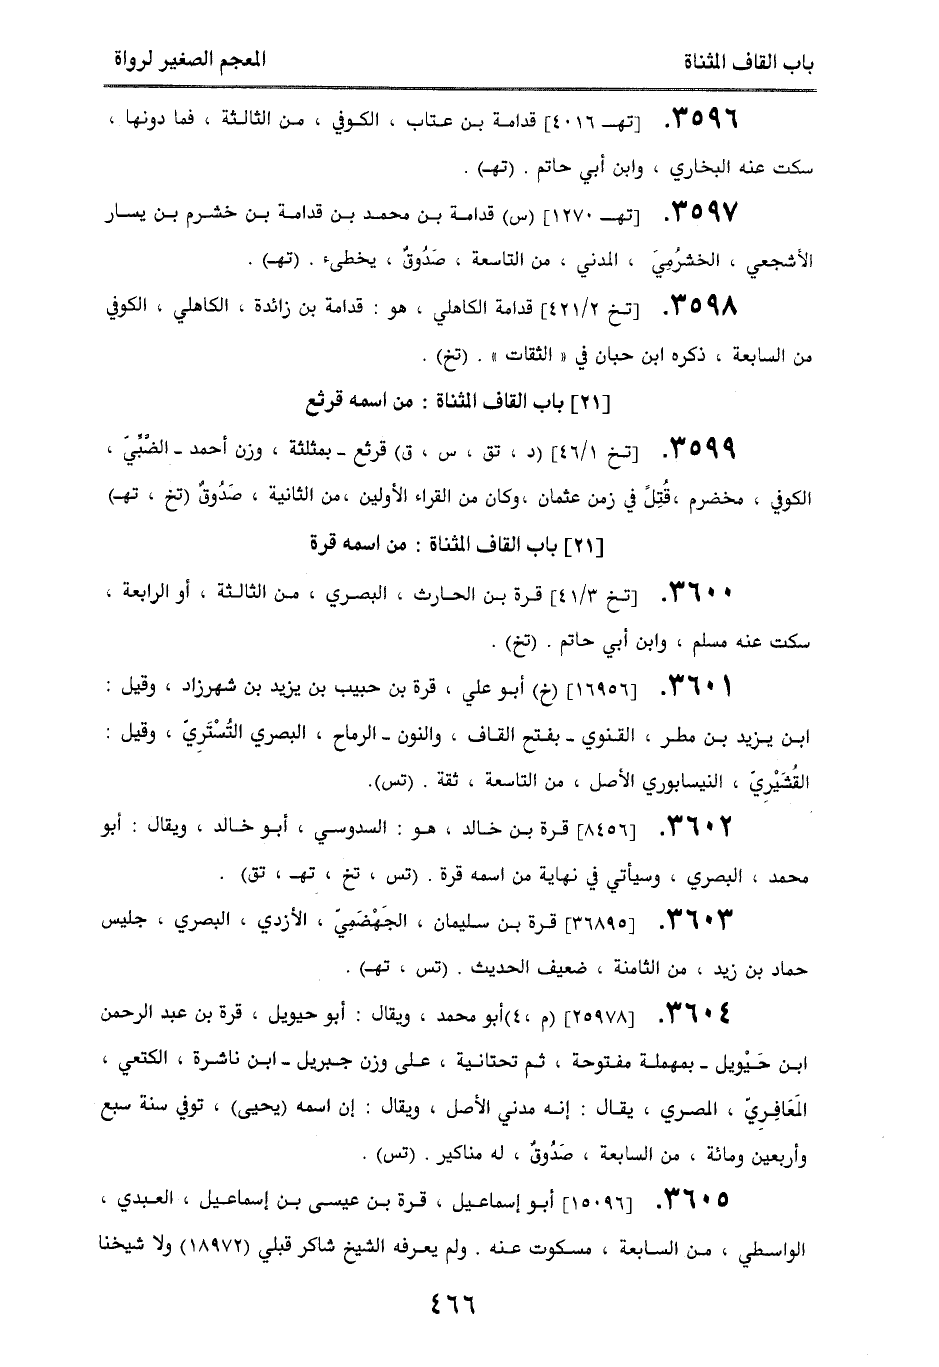 باب القاف المثناة المعجم الصغير لرواة
٣٥٩٦. [تهـ ٤٠١٦] قدامة بن عتاب ، الكوفي ، من الثالثة ، فما دونها ،
سكت عنه البخاري ، وابن أبي حاتم . (تهـ) .
٣٥٩٧. [تهـ ١٢٧٠] (س) قدامة بن محمد بن قدامة بن خشرم بن يسار
الأشجعي ، الخشرُمِيَ ، المدني ، من التاسعة ، صَدُوقٌ ، يخطىء . (تهـ) .
٣٥٩٨. [تخ ٤٢١/٢] قدامة الكاهلي ، هو : قدامة بن زائدة ، الكاهلي ، الكوفي
من السابعة ، ذكره ابن حبان في « الثقات » . (تخ) .
[٢١] باب القاف المثناة : من اسمه قرثع
٣٥٩٩. [تخ ٤٦/١] (د ، تق ، س ، ق) قرثع ـ بمثلثة ، وزن أحمد ـ الضَّبِّيّ ،
الكوفي ، مخضرم ،قُتِلَ في زمن عثمان ،وكان من القراء الأولين ،من الثانية ، صَدُوقٌ (تخ ، تهـ)
[٢١] باب القاف المثناة : من اسمه قرة
٣٦٠٠. [تخ ٤١/٣] قرة بن الحارث ، البصري ، من الثالثة ، أو الرابعة ،
سكت عنه مسلم ، وابن أبي حاتم . (تخ) .
٣٦٠١. [١٦٩٥٦] (خ) أبو علي ، قرة بن حبيب بن يزيد بن شهرزاد ، وقيل :
ابن يزيد بن مطر ، القنوي ـ بفتح القاف ، والنون ـ الرماح ، البصري التُسْتَرِيّ ، وقيل :
القُشَيْرِيّ ، النيسابوري الأصل ، من التاسعة ، ثقة . (تس).
٣٦٠٢. [٨٤٥٦] قرة بن خالد ، هو : السدوسي ، أبو خالد ، ويقال : أبو
محمد ، البصري ، وسيأتي في نهاية من اسمه قرة . (تس ، تخ ، تهـ ، تق) .
٣٦٠٣. [٣٦٨٩٥] قرة بن سليمان ، الجَهْضَمِيّ ، الأزدي ، البصري ، جليس
حماد بن زيد ، من الثامنة ، ضعيف الحديث . (تس ، تهـ) .
٣٦٠٤. [٢٥٩٧٨] (م ،٤)أبو محمد ، ويقال : أبو حيويل ، قرة بن عبد الرحمن
ابن حَيْويل ـ بمهملة مفتوحة ، ثم تحتانية ، على وزن جبريل ـ ابن ناشرة ، الكتعي ،
المَعَافِرِيّ ، المصري ، يقال : إنه مدني الأصل ، ويقال : إن اسمه (يحيى) ، توفي سنة سبع
وأربعين ومائة ، من السابعة ، صَدُوقٌ ، له مناكير . (تس) .
٣٦٠٥. [١٥٠٩٦] أبو إسماعيل ، قرة بن عيسى بن إسماعيل ، العبدي ،
الواسطي ، من السابعة ، مسكوت عنه . ولم يعرفه الشيخ شاكر قبلي (١٨٩٧٢) ولا شيخنا
٤٦٦